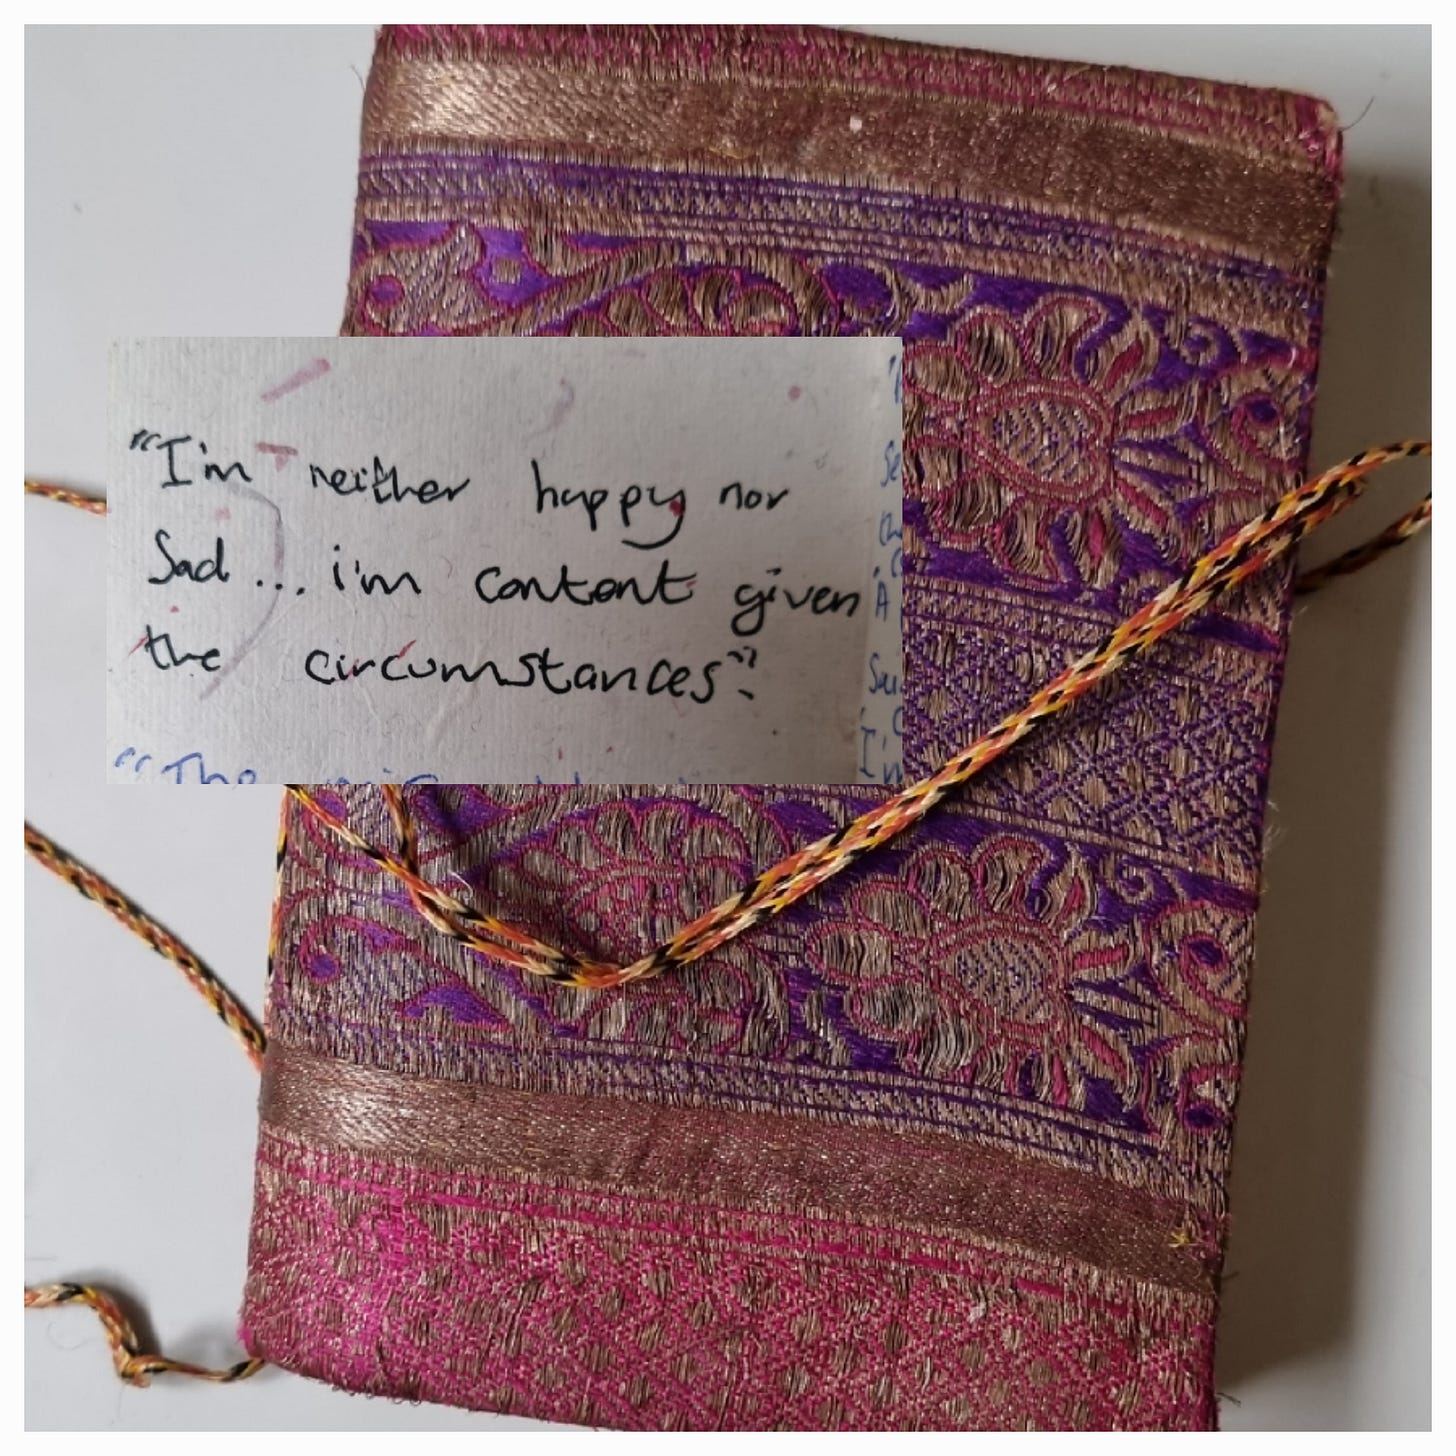 "I'm neither happy nor
Sad... i'm content given
the circumstances".
"The
I'm